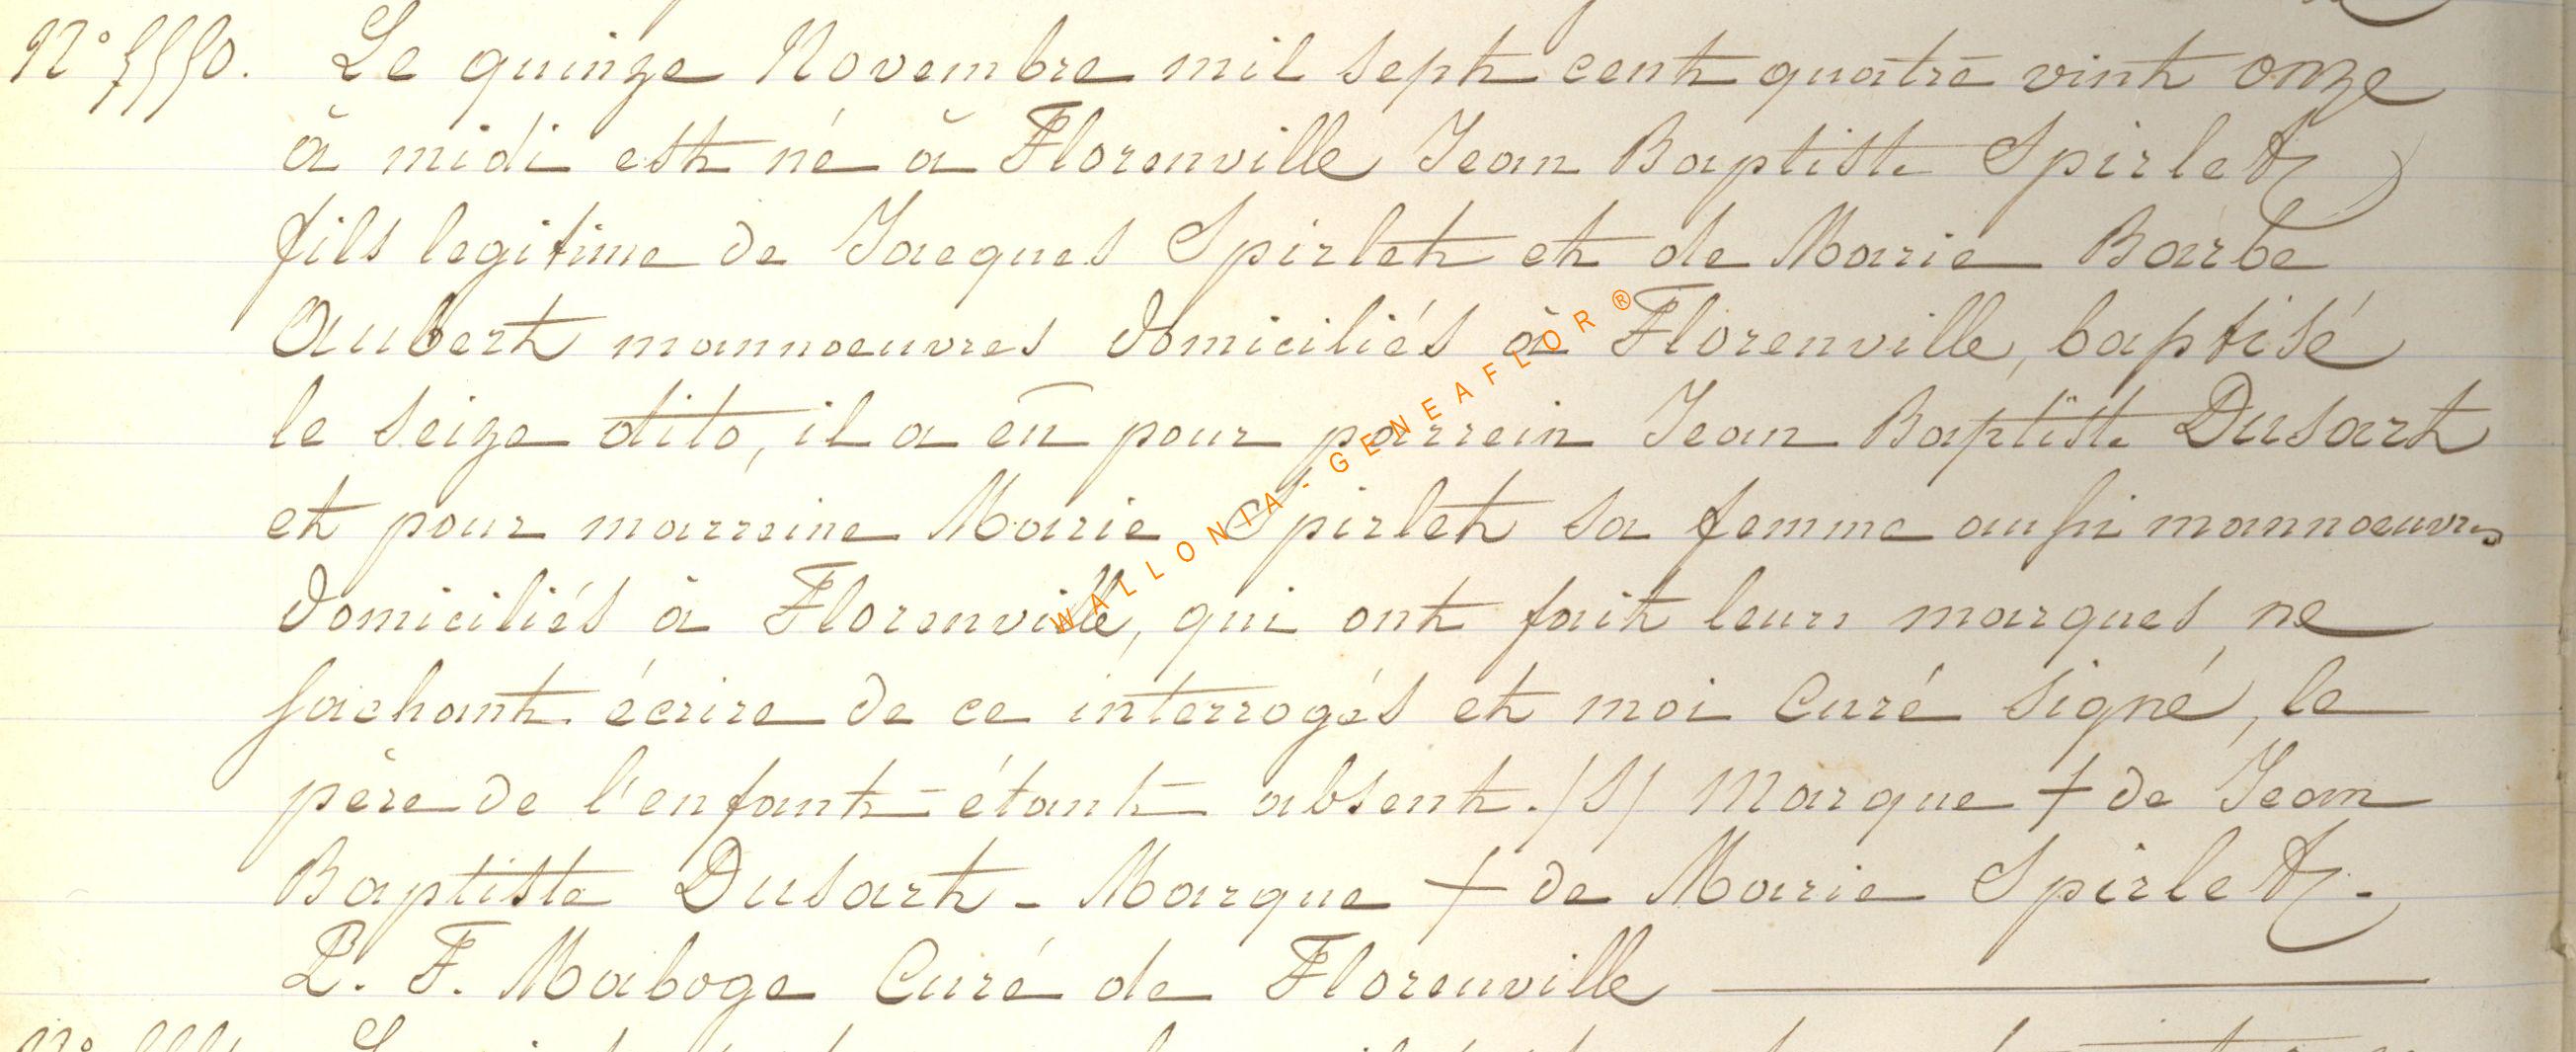 N° 5550. Le quinze Novembre mil sept cent quatre vint onze
à midi est né à Florenville Jean Baptiste Spirlet
fils legitime de Jacques Spirlet et de Marie Barbe
Aubert mannoeuvres domiciliés à Florenville, baptisé
le seize dito, il a eu pour parrein Jean Baptiste Dusart
et pour marreine Marie Spirlet sa femme aussi mannoeuvres
domiciliés à Florenville, qui ont fait leurs marques, ne
sachant écrire de ce interrogés et moi Curé signé, le
père de l'enfant étant absent. /S/ Marque + de Jean
Baptiste Dusart - Marque + de Marie Spirlet.
P. F. Maboge Curé de Florenville
WALLONIA.GENEAFLOR®